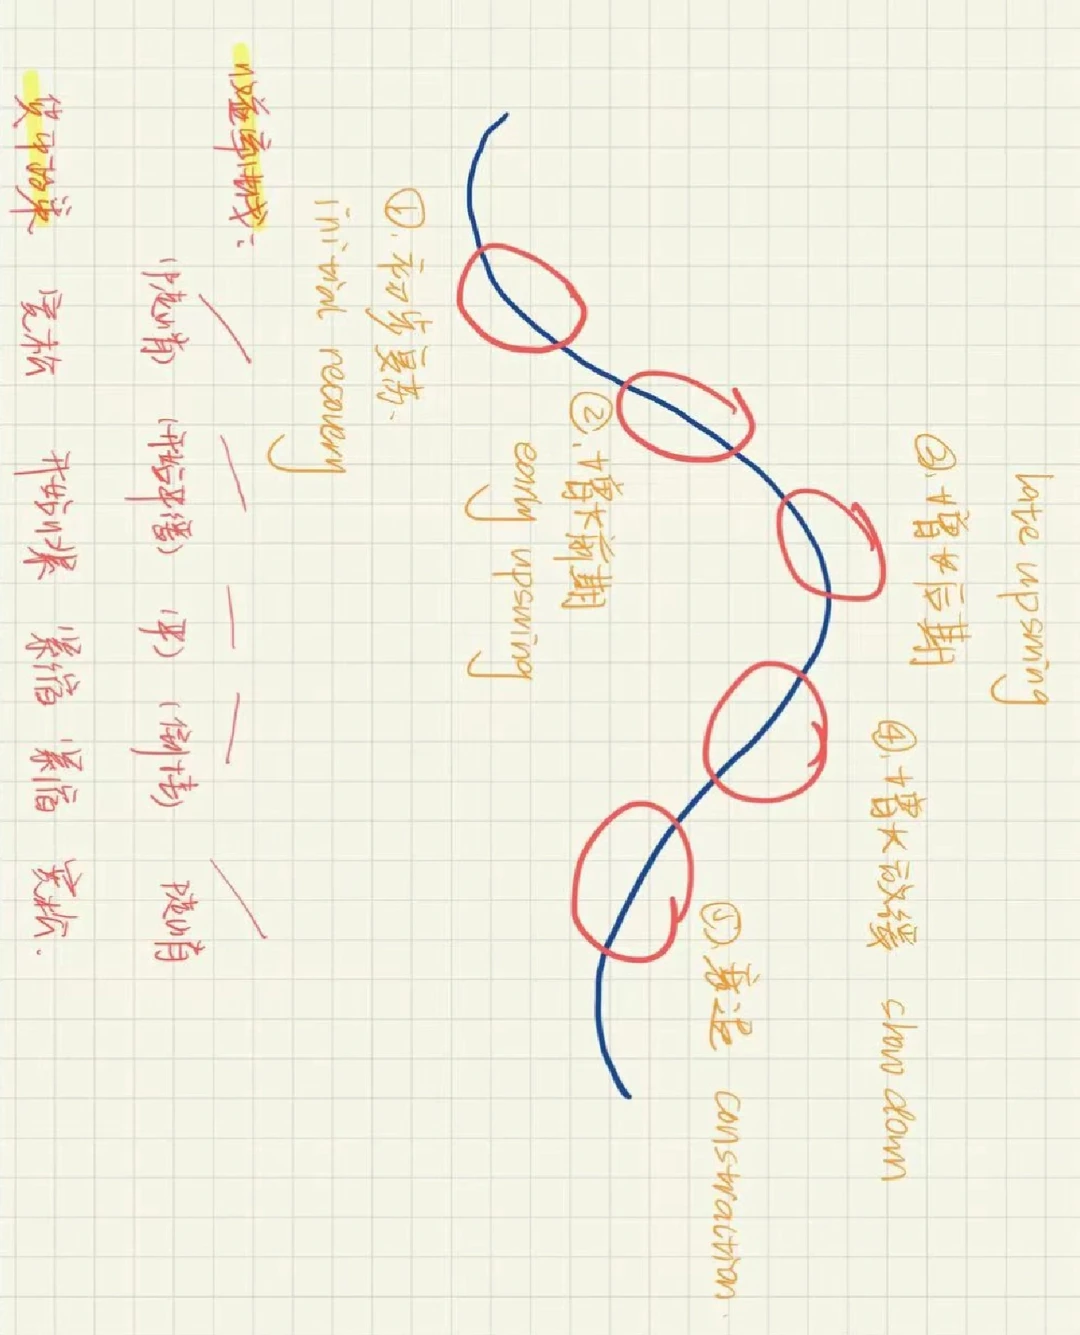 late upswing
③. 增长后期
④. 增长放缓 slow down
⑤. 衰退 constraction
②. 增长前期
early upswing
①. 初步复苏.
initial recovery
收益率曲线:
(陡峭) (开始平缓) (平) (倒挂) 陡峭
货币政策 宽松 开始收紧 紧缩 紧缩 宽松.